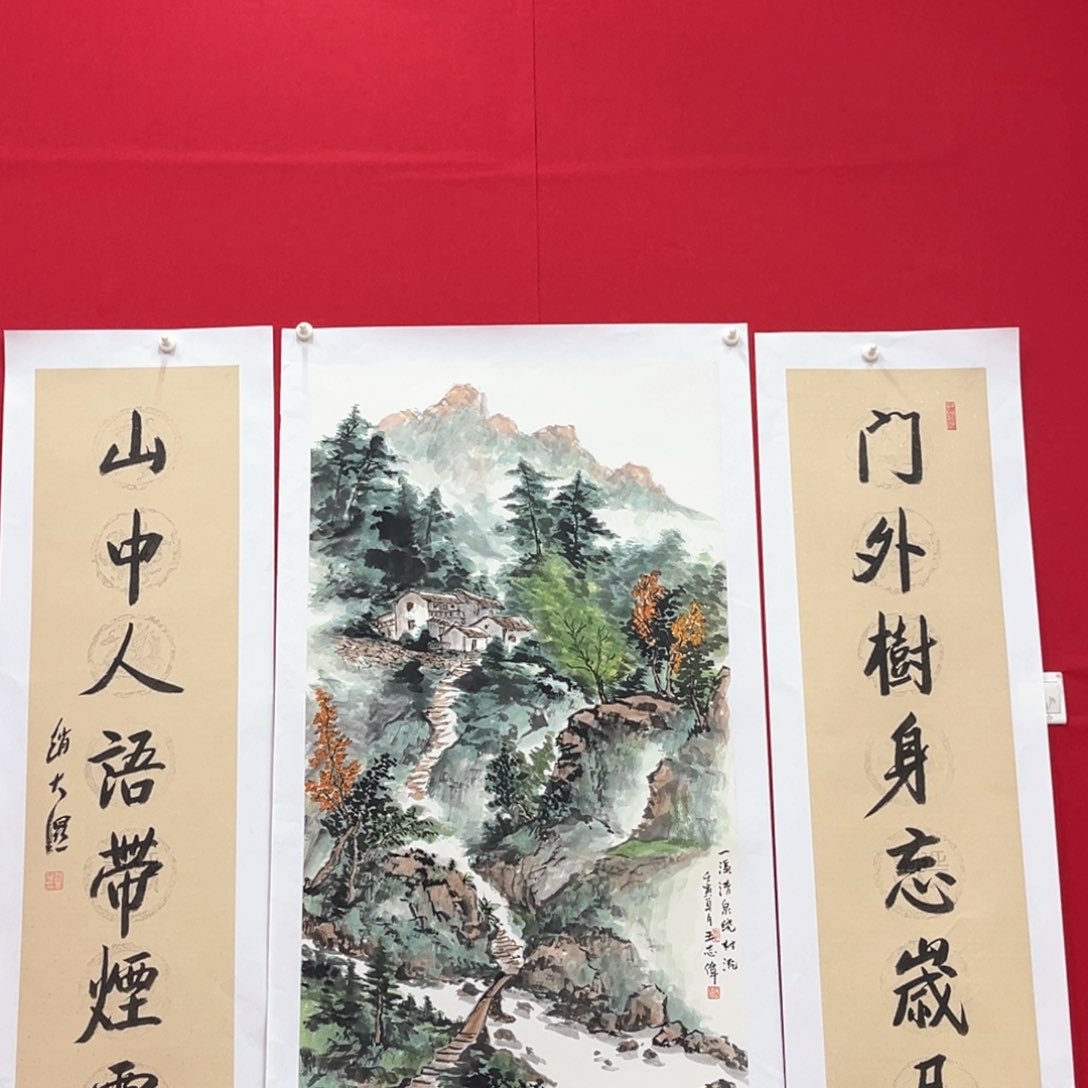 门外樹身忘歲
一溪清泉绕村流
壬寅夏月王志偉
山中人語帶煙